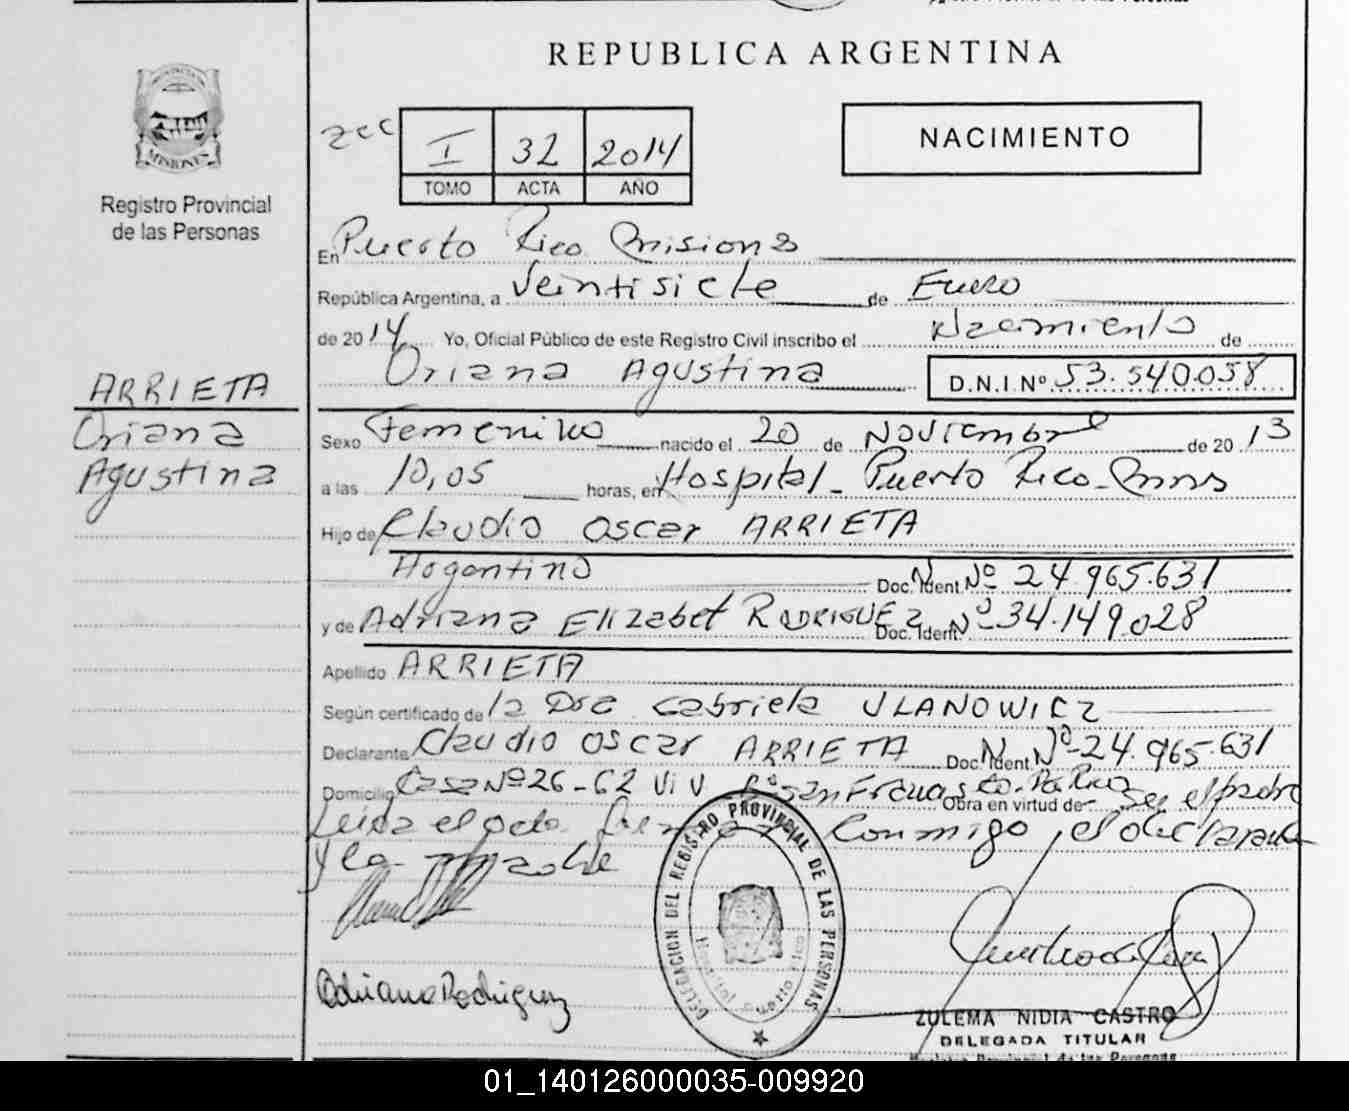 REPUBLICA ARGENTINA
MISIONES
Registro Provincial
de las Personas
I 32 2014
TOMO ACTA AÑO
NACIMIENTO
En Puerto Rico Misiones
República Argentina, a Veintisiete de Enero
de 2014 Yo, Oficial Público de este Registro Civil inscribo el Nacimiento de
Oriana Agustina D.N.I Nº 53.540.058
ARRIETA
Oriana
Agustina
Sexo Femenino nacido el 20 de Noviembre de 2013
a las 10,05 horas, en Hospital - Puerto Rico - Mnes
Hijo de Claudio Oscar ARRIETA
Argentino Doc. Ident. Nº 24.965.631
y de Adriana Elizabet RODRIGUEZ Doc. Ident. Nº 34.149.028
Apellido ARRIETA
Según certificado de la Dra Gabriela ULANOWICZ
Declarante Claudio Oscar ARRIETA Doc. Ident. Nº 24.965.631
Domicilio Casa Nº 26 - 62 Viv Bº San Obra en virtud de Ser el padre
Leida el acta Conmigo, el declarante
y la madre
DELEGACION DEL REGISTRO PROVINCIAL DE LAS PERSONAS
Hospital Puerto Rico
Adriana Rodriguez
ZULEMA NIDIA CASTRO
DELEGADA TITULAR
Registro Provincial de las Personas
01_140126000035-009920